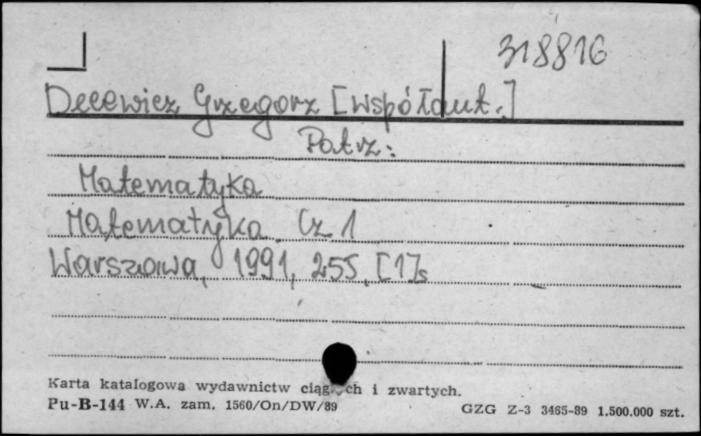 318816
Decewicz Grzegorz [współaut.]
Patrz:
Matematyka
Matematyka Cz 1
Warszawa, 1991, 255, [1]s
Karta katalogowa wydawnictw ciągłych i zwartych.
Pu-B-144 W.A. zam. 1560/On/DW/89
GZG Z-3 3465-89 1.500.000 szt.